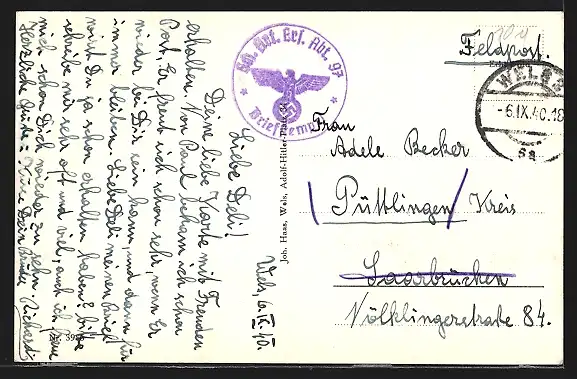 Wels, 6.IX.40.
Liebe Deli!
Deine liebe Karte mit Freuden
erhalten. Von Paul bekam ich schon
Post. Er freut sich schon sehr, wenn Er
wieder bei Dir sein kann, und dann für
immer bleiben. Liebe Deli meinen Brief
wirst Du ja schon erhalten haben? bitte
schreibe mir sehr oft und viel, auch ich freue
mich schon Dich wieder zu sehn.
Herzliche Grüße
Dein Bruder Richard
Nr. 59
Joh. Haas, Wels, Adolf-Hitler-Platz
Abt. 97
Feldpost.
WELS
-6.IX.40.18
Frau
Adele Becker
Püttlingen Kreis
Saarbrücken
Völklingerstraße 84.